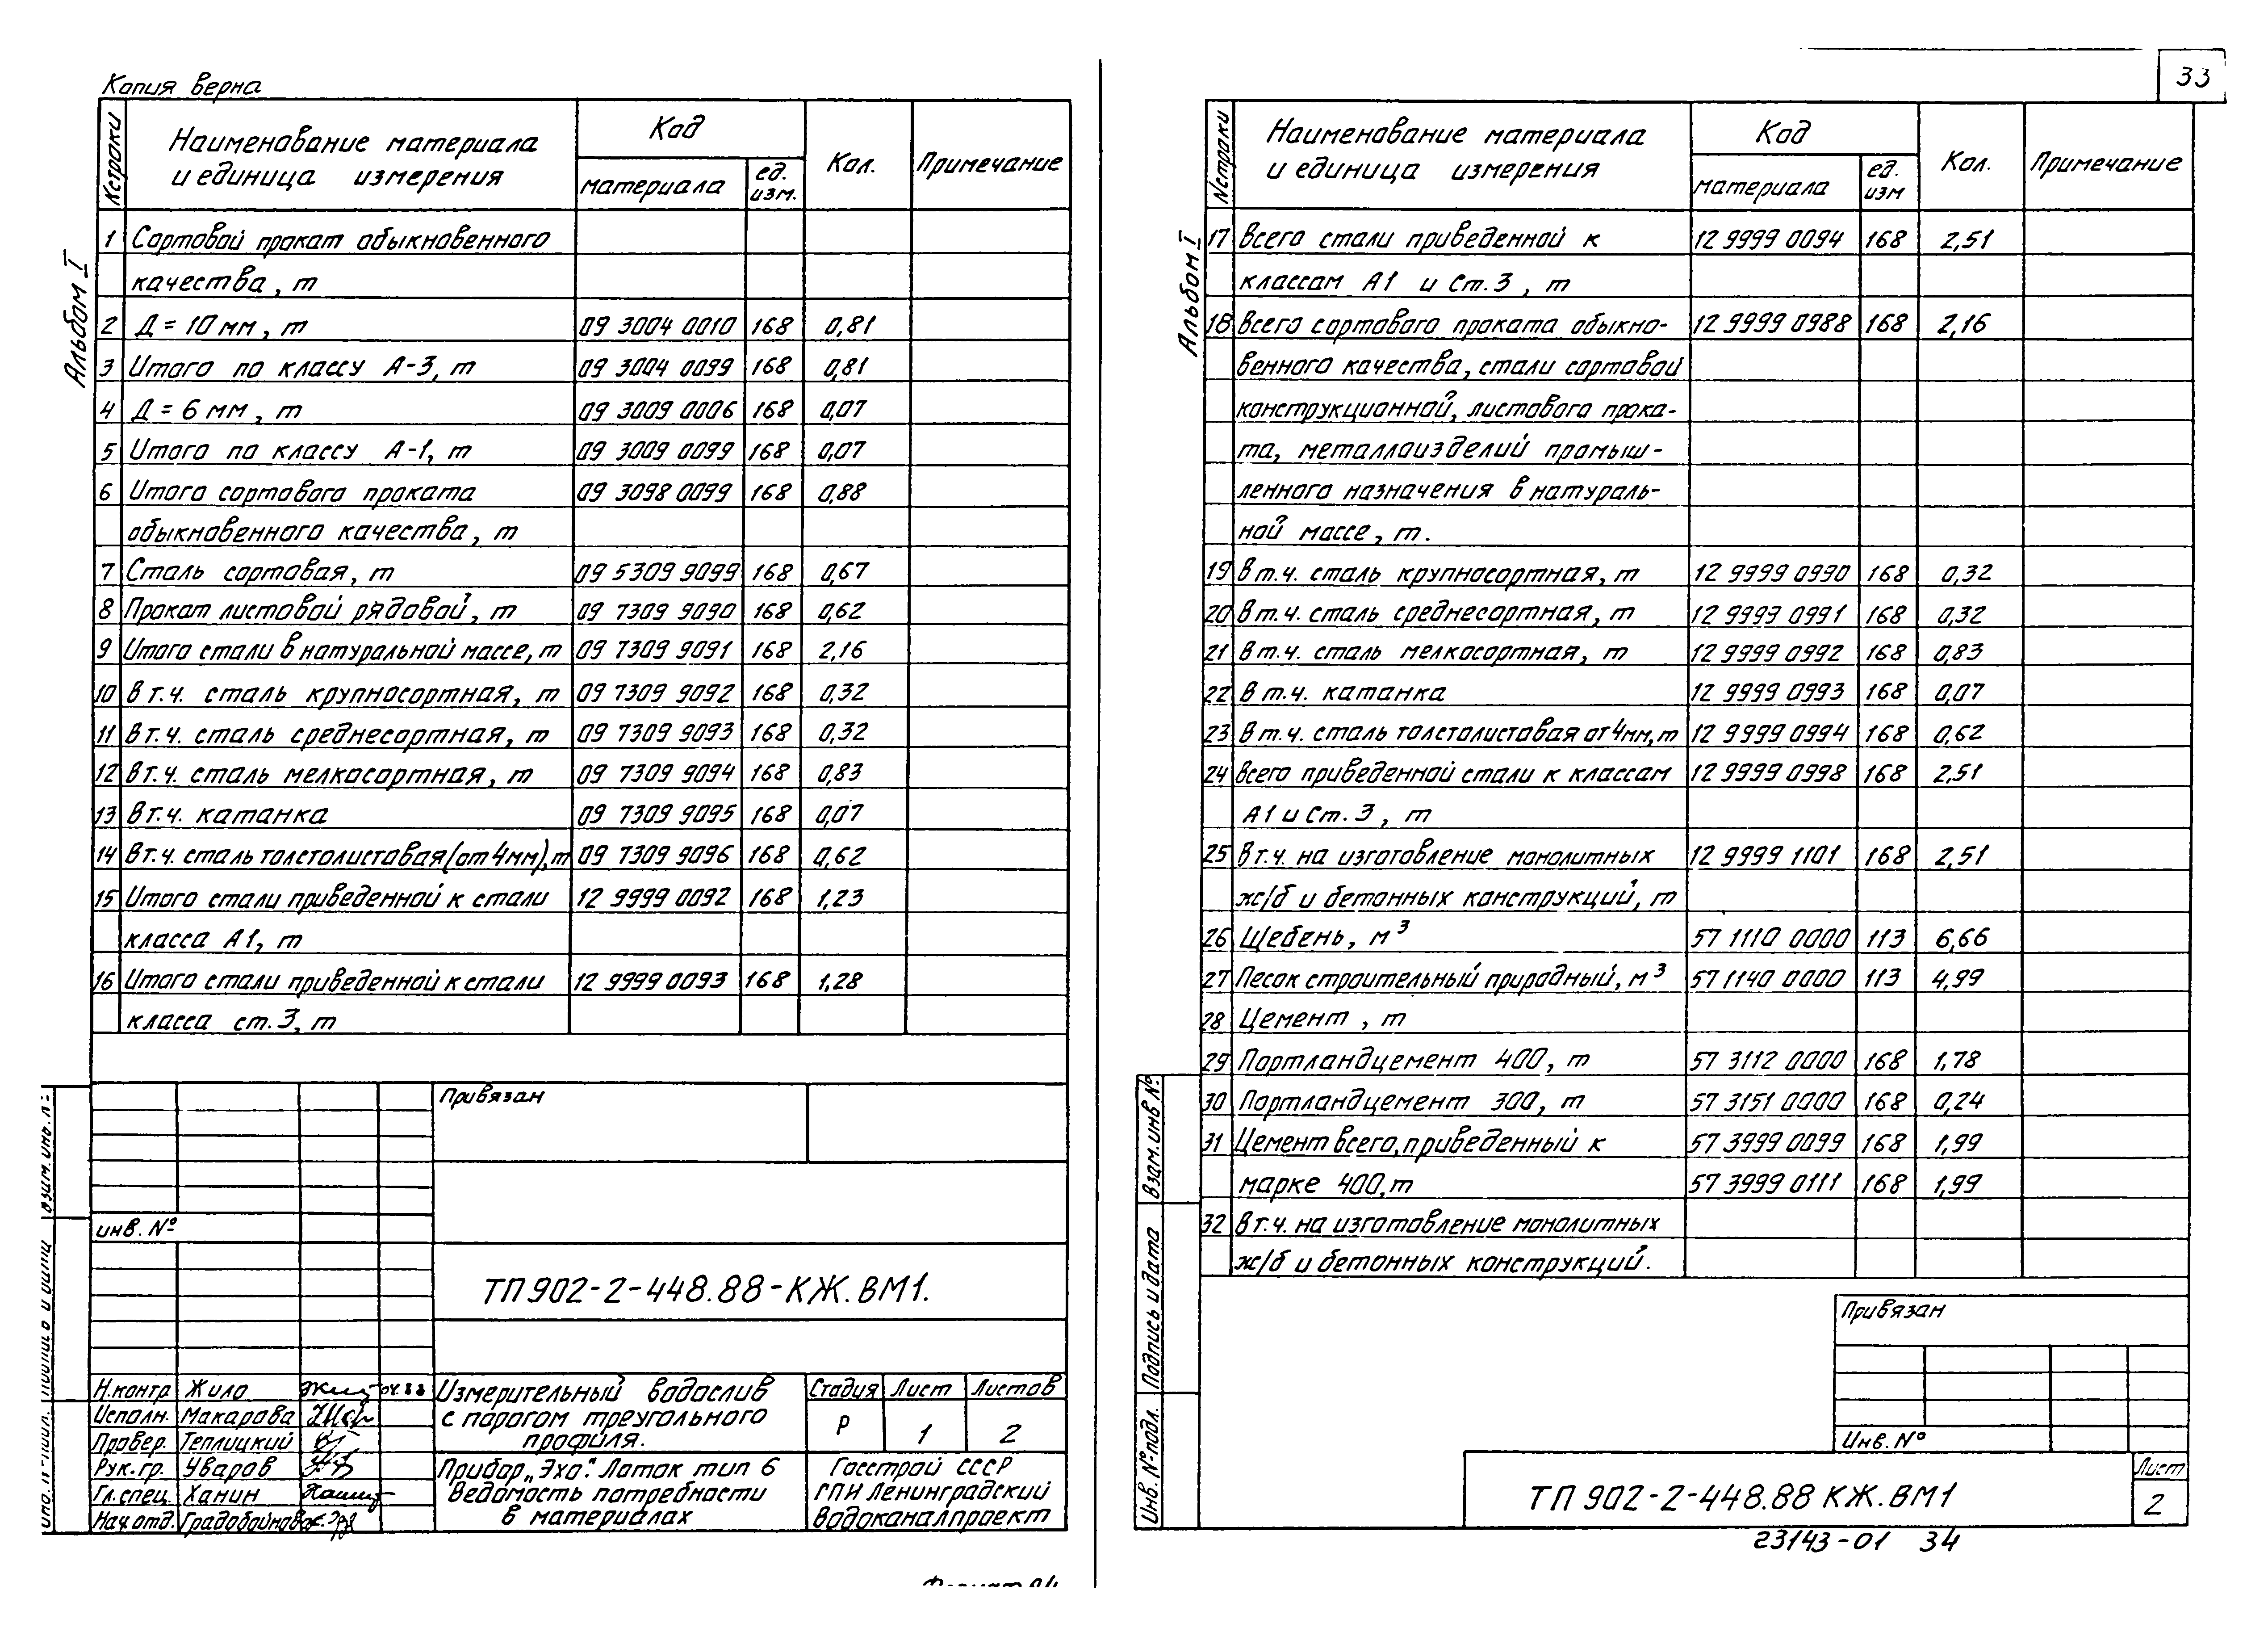 Копия верна
№строки Наименование материала и единица измерения Код материала ед. изм. Кол. Примечание
Альбом I
1 Сортовой прокат обыкновенного
качества, т
2 Д = 10 мм, т 09 3004 0010 168 0,81
3 Итого по классу А-3, т 09 3004 0099 168 0,81
4 Д = 6 мм, т 09 3009 0006 168 0,07
5 Итого по классу А-1, т 09 3009 0099 168 0,07
6 Итого сортового проката 09 3098 0099 168 0,88
обыкновенного качества, т
7 Сталь сортовая, т 09 5309 9099 168 0,67
8 Прокат листовой рядовой, т 09 7309 9090 168 0,62
9 Итого стали в натуральной массе, т 09 7309 9091 168 2,16
10 В т.ч. сталь крупносортная, т 09 7309 9092 168 0,32
11 В т.ч. сталь среднесортная, т 09 7309 9093 168 0,32
12 В т.ч. сталь мелкосортная, т 09 7309 9094 168 0,83
13 В т.ч. катанка 09 7309 9095 168 0,07
14 В т.ч. сталь толстолистовая (от 4 мм), т 09 7309 9096 168 0,62
15 Итого стали приведенной к стали 12 9999 0092 168 1,23
класса А1, т
16 Итого стали приведенной к стали 12 9999 0093 168 1,28
класса ст. 3, т
Привязан
взам. инв. №
инв. №
ТП 902-2-448.88-КЖ.ВМ1.
Н.контр Жило 04.88
Исполн. Макарова
Провер. Теплицкий
Рук.гр. Уваров
Гл.спец. Ханин
Нач.отд. Градобойнова
Измерительный водослив
с порогом треугольного
профиля.
Стадия Лист Листов
Р 1 2
Прибор „Эхо". Лоток тип 6
Ведомость потребности
в материалах
Госстрой СССР
ГПИ Ленинградский
Водоканалпроект
33
№строки Наименование материала и единица измерения Код материала ед. изм Кол. Примечание
Альбом I
17 Всего стали приведенной к 12 9999 0094 168 2,51
классам А1 и Ст. 3, т
18 Всего сортового проката обыкно- 12 9999 0988 168 2,16
венного качества, стали сортовой
конструкционной, листового прока-
та, металлоизделий промыш-
ленного назначения в натураль-
ной массе, т.
19 В т.ч. сталь крупносортная, т 12 9999 0990 168 0,32
20 В т.ч. сталь среднесортная, т 12 9999 0991 168 0,32
21 В т.ч. сталь мелкосортная, т 12 9999 0992 168 0,83
22 В т.ч. катанка 12 9999 0993 168 0,07
23 В т.ч. сталь толстолистовая от 4мм, т 12 9999 0994 168 0,62
24 Всего приведенной стали к классам 12 9999 0998 168 2,51
А1 и Ст. 3, т
25 В т.ч. на изготовление монолитных 12 9999 1101 168 2,51
ж/б и бетонных конструкций, т
26 Щебень, м³ 57 1110 0000 113 6,66
27 Песок строительный природный, м³ 57 1140 0000 113 4,99
28 Цемент, т
29 Портландцемент 400, т 57 3112 0000 168 1,78
30 Портландцемент 300, т 57 3151 0000 168 0,24
31 Цемент всего, приведенный к 57 3999 0099 168 1,99
марке 400, т 57 3999 0111 168 1,99
32 В т.ч. на изготовление монолитных
ж/б и бетонных конструкций.
Взам. инв №.
Подпись и дата
Инв. № подл.
Привязан
Инв. №
ТП 902-2-448.88 КЖ.ВМ1
Лист
2
23143-01 34